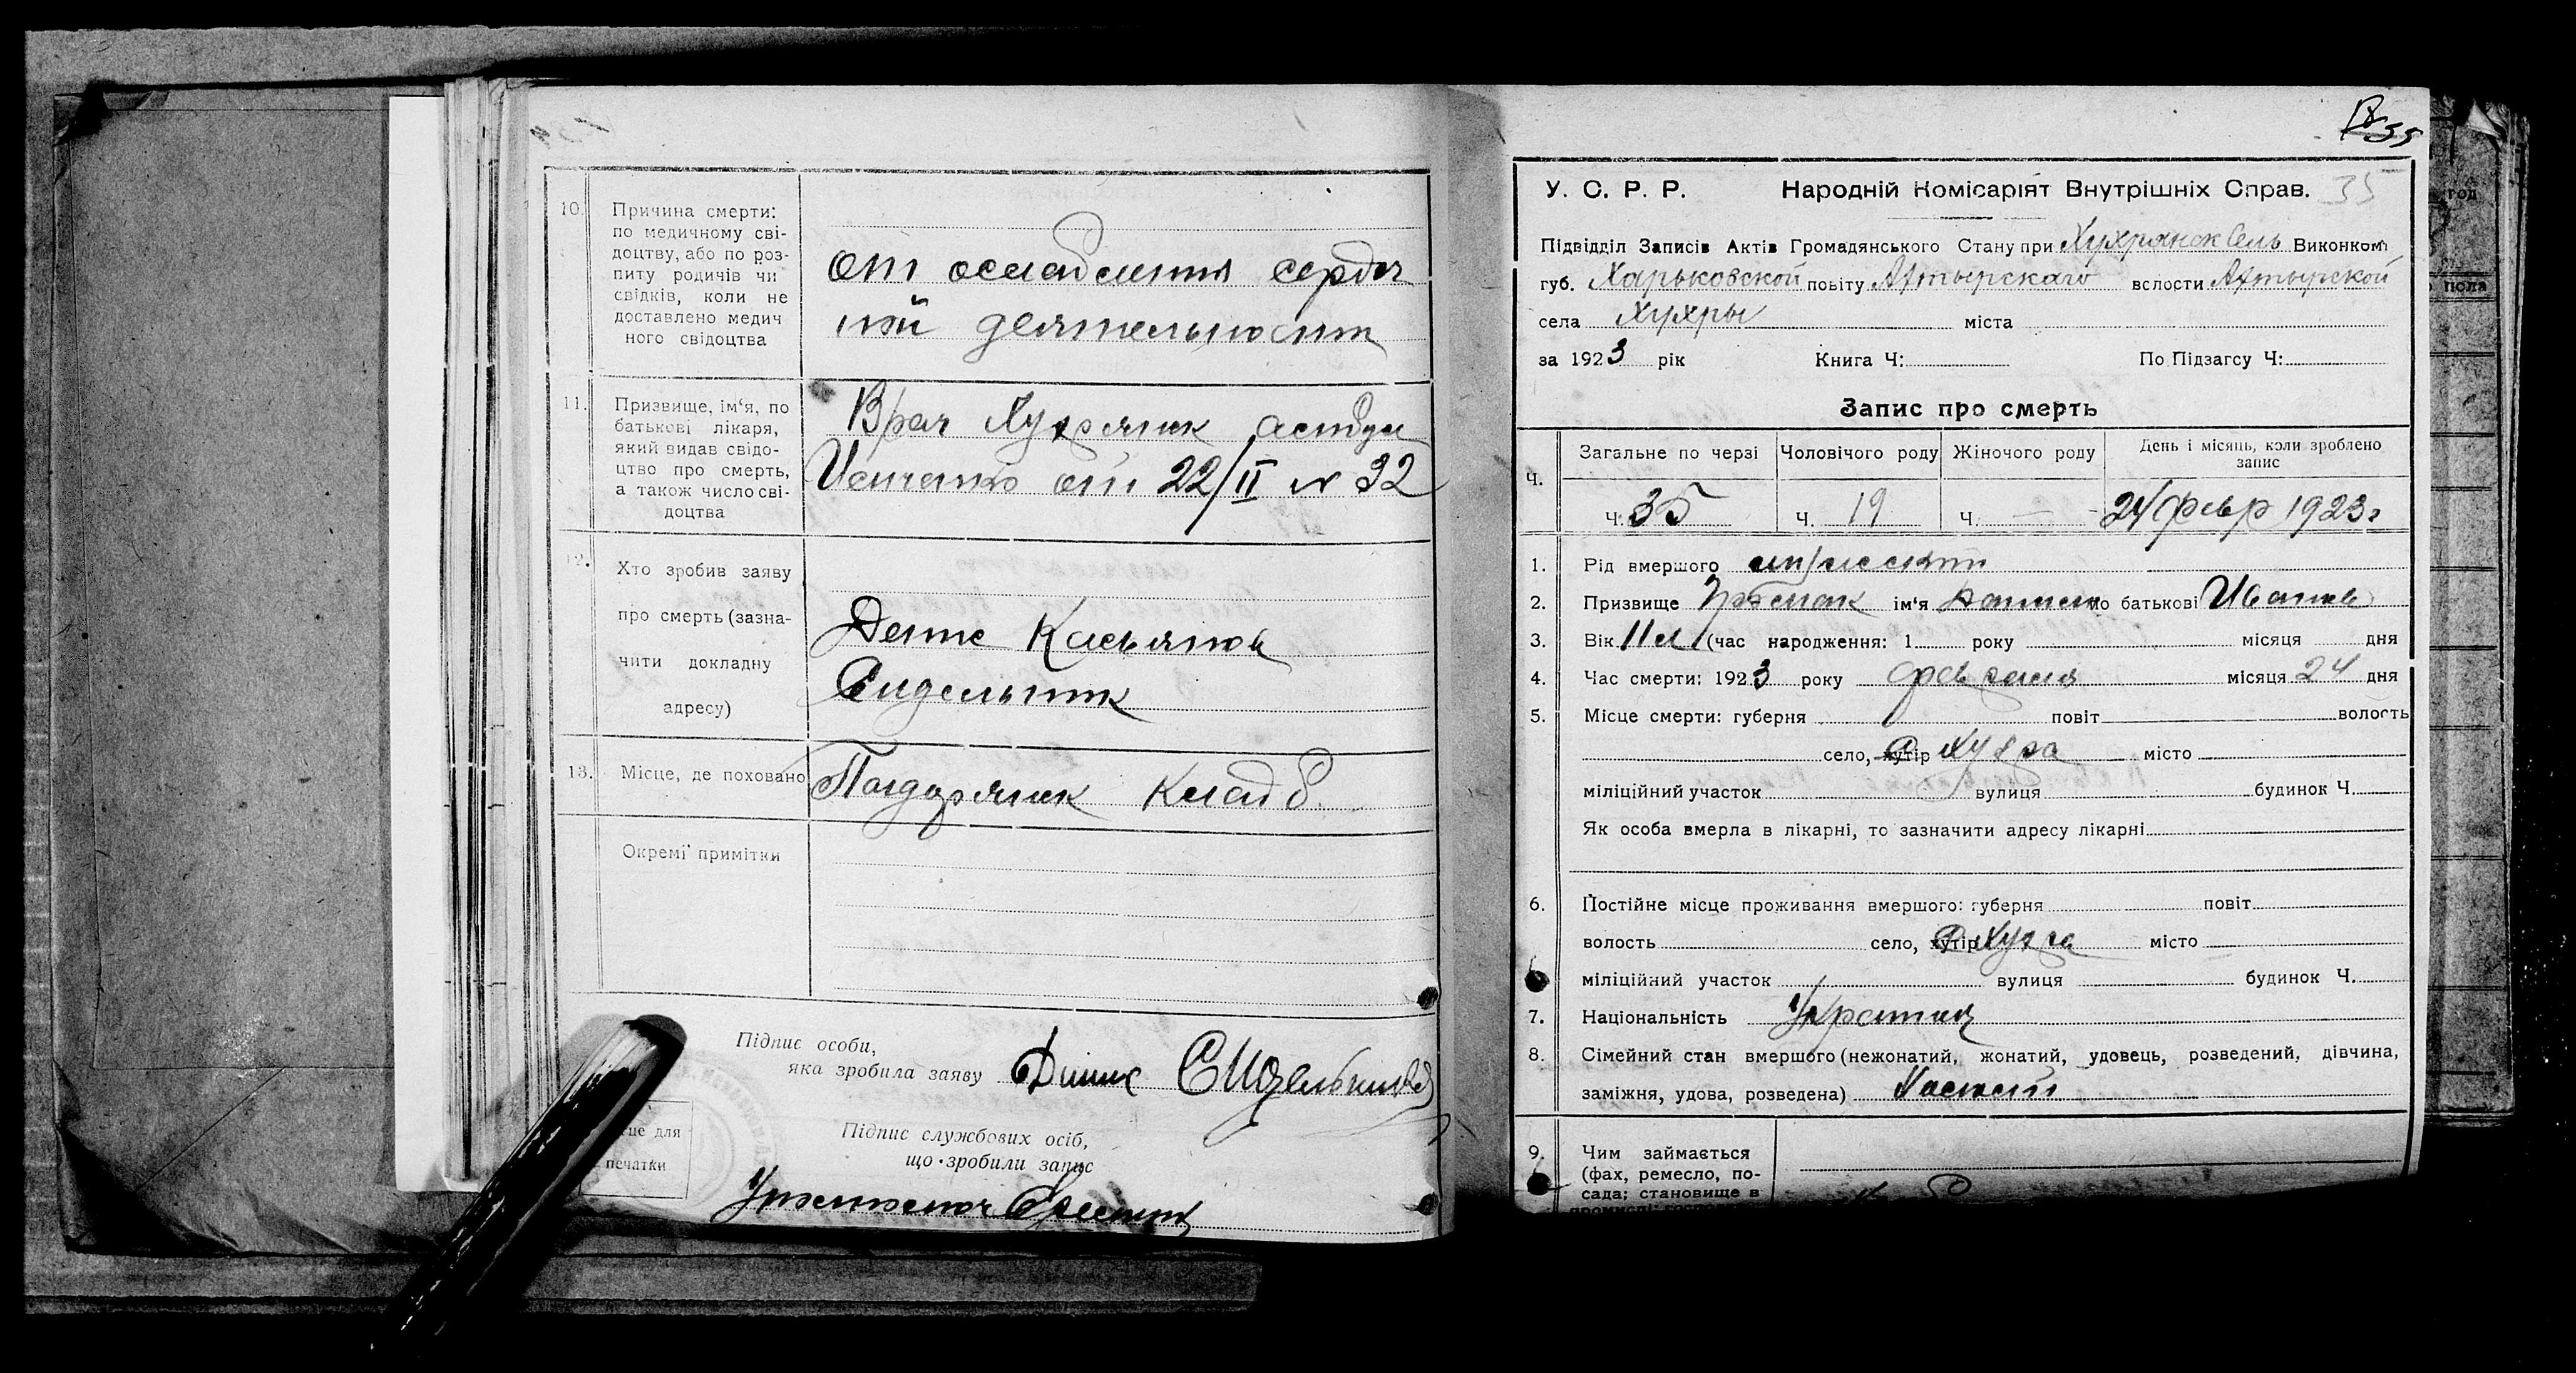 10.
Причина смерти:
по медичному сві-
доцтву, або по роз-
питу родичів чи
свідків, коли не
доставлено медич
ного свідоцтва
от ослабления сердеч
ной деятельности
11.
Призвище, ім‘я, по
батькові лікаря,
який видав свідо-
цтво про смерть,
а також число сві-
доцтва
Врач Хухрянск
от 22/II № 32
12.
Хто зробив заяву
про смерть (зазна-
чити докладну
адресу)
Денис Касьянов
Сидельник
13.
Місце, де поховано
Кладб.
Окремі примітки
Підпис особи,
яка зробила заяву
Сидельников
Підпис службових осіб,
що зробили запис
це для
печатки
35
У. С. Р. Р. Народній Комісаріят Внутрішніх Справ. 35
Підвідділ Записів Актів Громадянського Стану при Хухрянск Сель Виконком
губ. Харьковской повіту Ахтырскаго вслости Ахтырской
села Хухры міста
за 1923 рік Книга Ч: По Підзагсу Ч:
Запис про смерть
Ч.
Загальне по черзі Чоловічого роду Жіночого роду День і місяць, коли зроблено
запис
Ч. 35 Ч. 19 Ч. — 24 февр 1923 г
1. Рід вмершого
2. Призвище ім‘я по батькові Иванов
3. Вік 11 м (час народження: 1 року місяця дня
4. Час смерти: 1923 року февраля місяця 24 дня
5. Місце смерти: губерня повіт волость
село, хутір Хухра місто
міліційний участок вулиця будинок Ч.
Як особа вмерла в лікарні, то зазначити адресу лікарні
6. Постійне місце проживання вмершого: губерня повіт
волость село, хутір Хухра місто
міліційний участок вулиця будинок Ч.
7. Національність Украинц
8. Сімейний стан вмершого (нежонатий, жонатий, удовець, розведений, дівчина,
заміжня, удова, розведена) Холост
9. Чим займається
(фах, ремесло, по-
сада; становище в